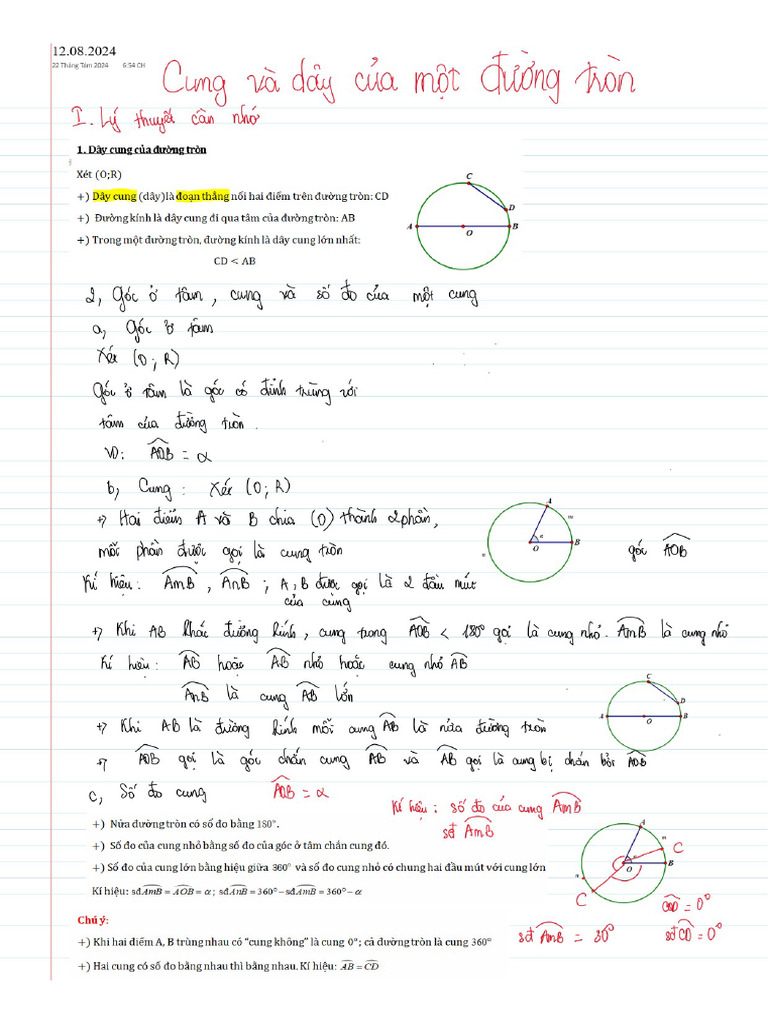 12.08.2024
22 Tháng Tám 2024 6:54 CH
Cung và dây của một đường tròn
I. Lý thuyết cần nhớ
1. Dây cung của đường tròn
Xét (O;R)
+) Dây cung (dây)là đoạn thẳng nối hai điểm trên đường tròn: CD
+) Đường kính là dây cung đi qua tâm của đường tròn: AB
+) Trong một đường tròn, đường kính là dây cung lớn nhất:
CD < AB
C
D
A
O
B
2, Góc ở tâm, cung và số đo của một cung
a, Góc ở tâm
Xét (O; R)
Góc ở tâm là góc có đỉnh trùng với
tâm của đường tròn.
VD: \widehat{AOB} = α
b, Cung: Xét (O; R)
+) Hai điểm A và B chia (O) thành 2 phần,
mỗi phần được gọi là cung tròn
A
m
α
O
B
n
góc \widehat{AOB}
Kí hiệu: \widehat{AmB}, \widehat{AnB}; A, B được gọi là 2 đầu mút
của cung
+) Khi AB khác đường kính, cung trong \widehat{AOB} < 180° gọi là cung nhỏ. \widehat{AmB} là cung nhỏ
Kí hiệu: \widehat{AB} hoặc \widehat{AB} nhỏ hoặc cung nhỏ \widehat{AB}
\widehat{AnB} là cung \widehat{AB} lớn
C
D
A
O
B
+) Khi AB là đường kính mỗi cung \widehat{AB} là nửa đường tròn
+) \widehat{AOB} gọi là góc chắn cung \widehat{AB} và \widehat{AB} gọi là cung bị chắn bởi \widehat{AOB}
c, Số đo cung \widehat{AOB} = α
Kí hiệu: số đo của cung \widehat{AmB}
sđ \widehat{AmB}
+) Nửa đường tròn có số đo bằng 180°.
+) Số đo của cung nhỏ bằng số đo của góc ở tâm chắn cung đó.
+) Số đo của cung lớn bằng hiệu giữa 360° và số cung nhỏ có chung hai đầu mút với cung lớn
Kí hiệu: sđ\widehat{AmB} = \widehat{AOB} = α ; sđ\widehat{AnB} = 360° − sđ\widehat{AmB} = 360° − α
A
m
C
α
O
B
n
C
\widehat{COD} = 0°
Chú ý:
+) Khi hai điểm A, B trùng nhau có "cung không" là cung 0°; cả đường tròn là cung 360°
sđ \widehat{AmB} = 30°
sđ \widehat{CD} = 0°
+) Hai cung có số đo bằng nhau thì bằng nhau. Kí hiệu: \widehat{AB} = \widehat{CD}